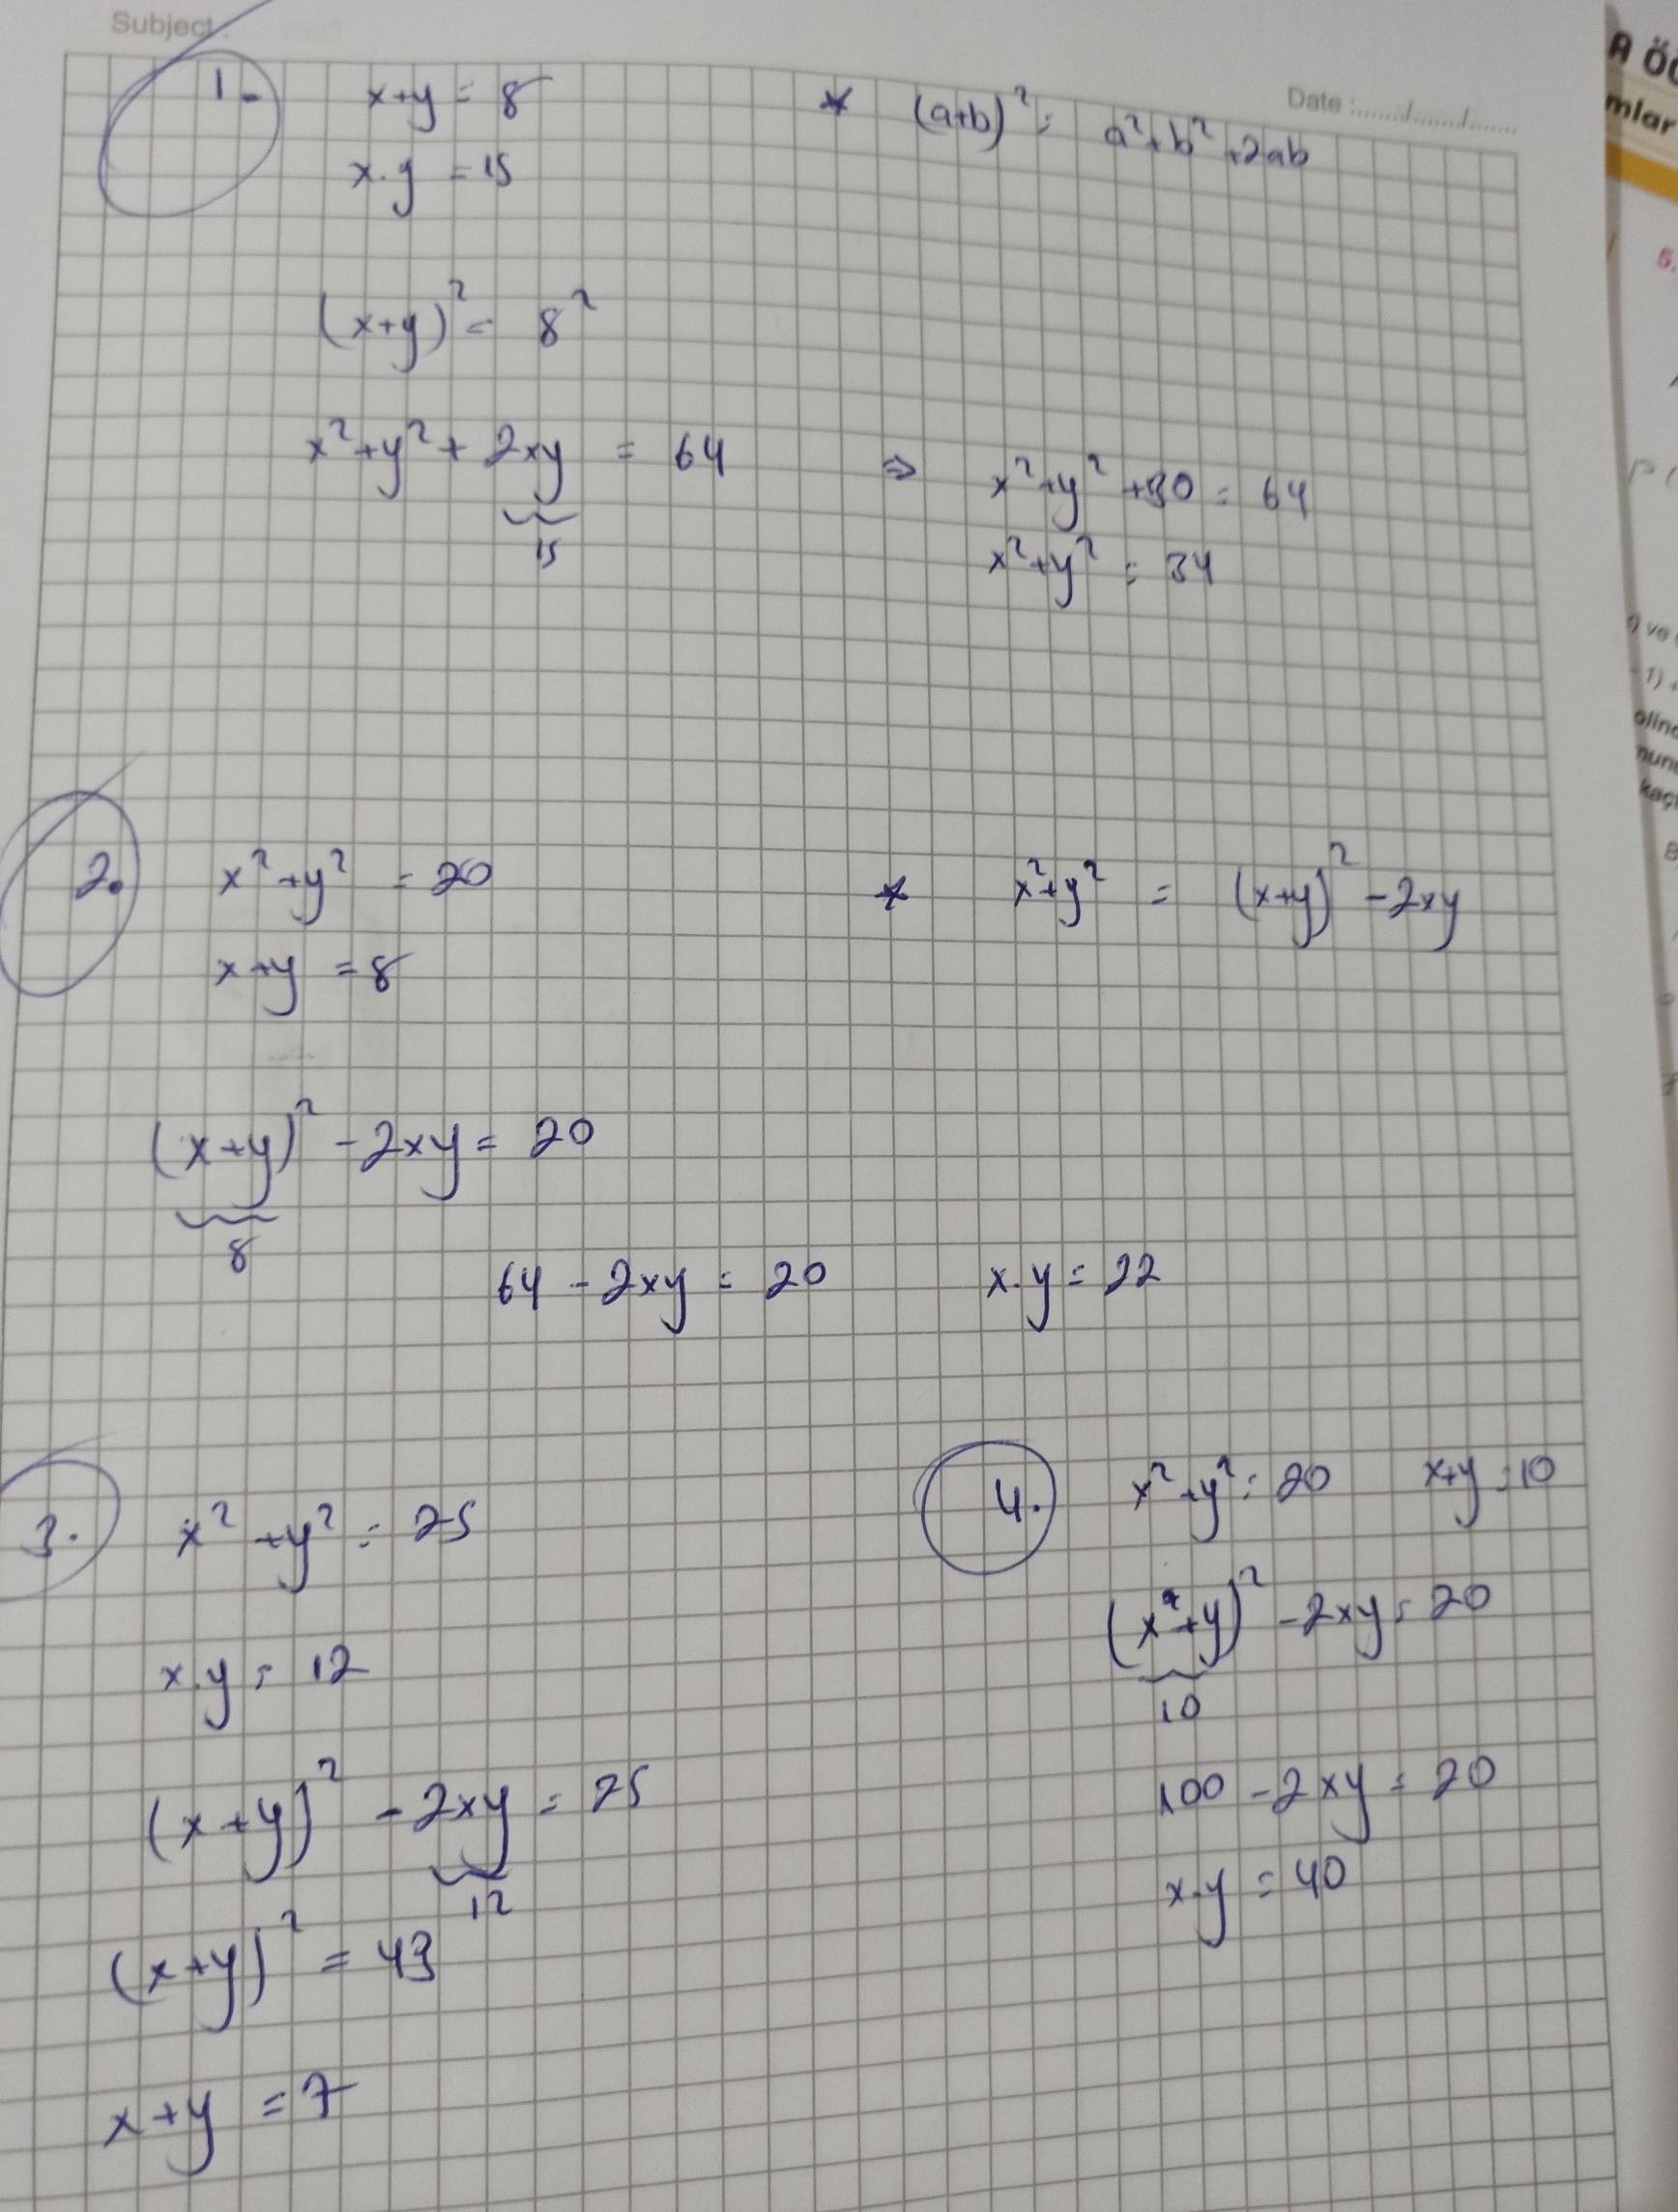 Subject :
Date :......./......./.......
1. x+y = 8
x.y = 15
* (a+b)² = a²+b²+2ab
(x+y)² = 8²
x²+y²+2xy = 64
15
⇒ x²+y²+30 = 64
x²+y² = 34
2. x²+y² = 20
x+y = 8
* x²+y² = (x+y)² -2xy
(x+y)² -2xy = 20
8
64 - 2xy = 20
x.y = 22
3. x²+y² = 25
x.y = 12
(x+y)² - 2xy = 25
12
(x+y)² = 49
x+y = 7
4. x²+y² = 20 x+y = 10
(x+y)² -2xy = 20
10
100 -2xy = 20
x.y = 40
mlar
5.
ve
-1)
kaç